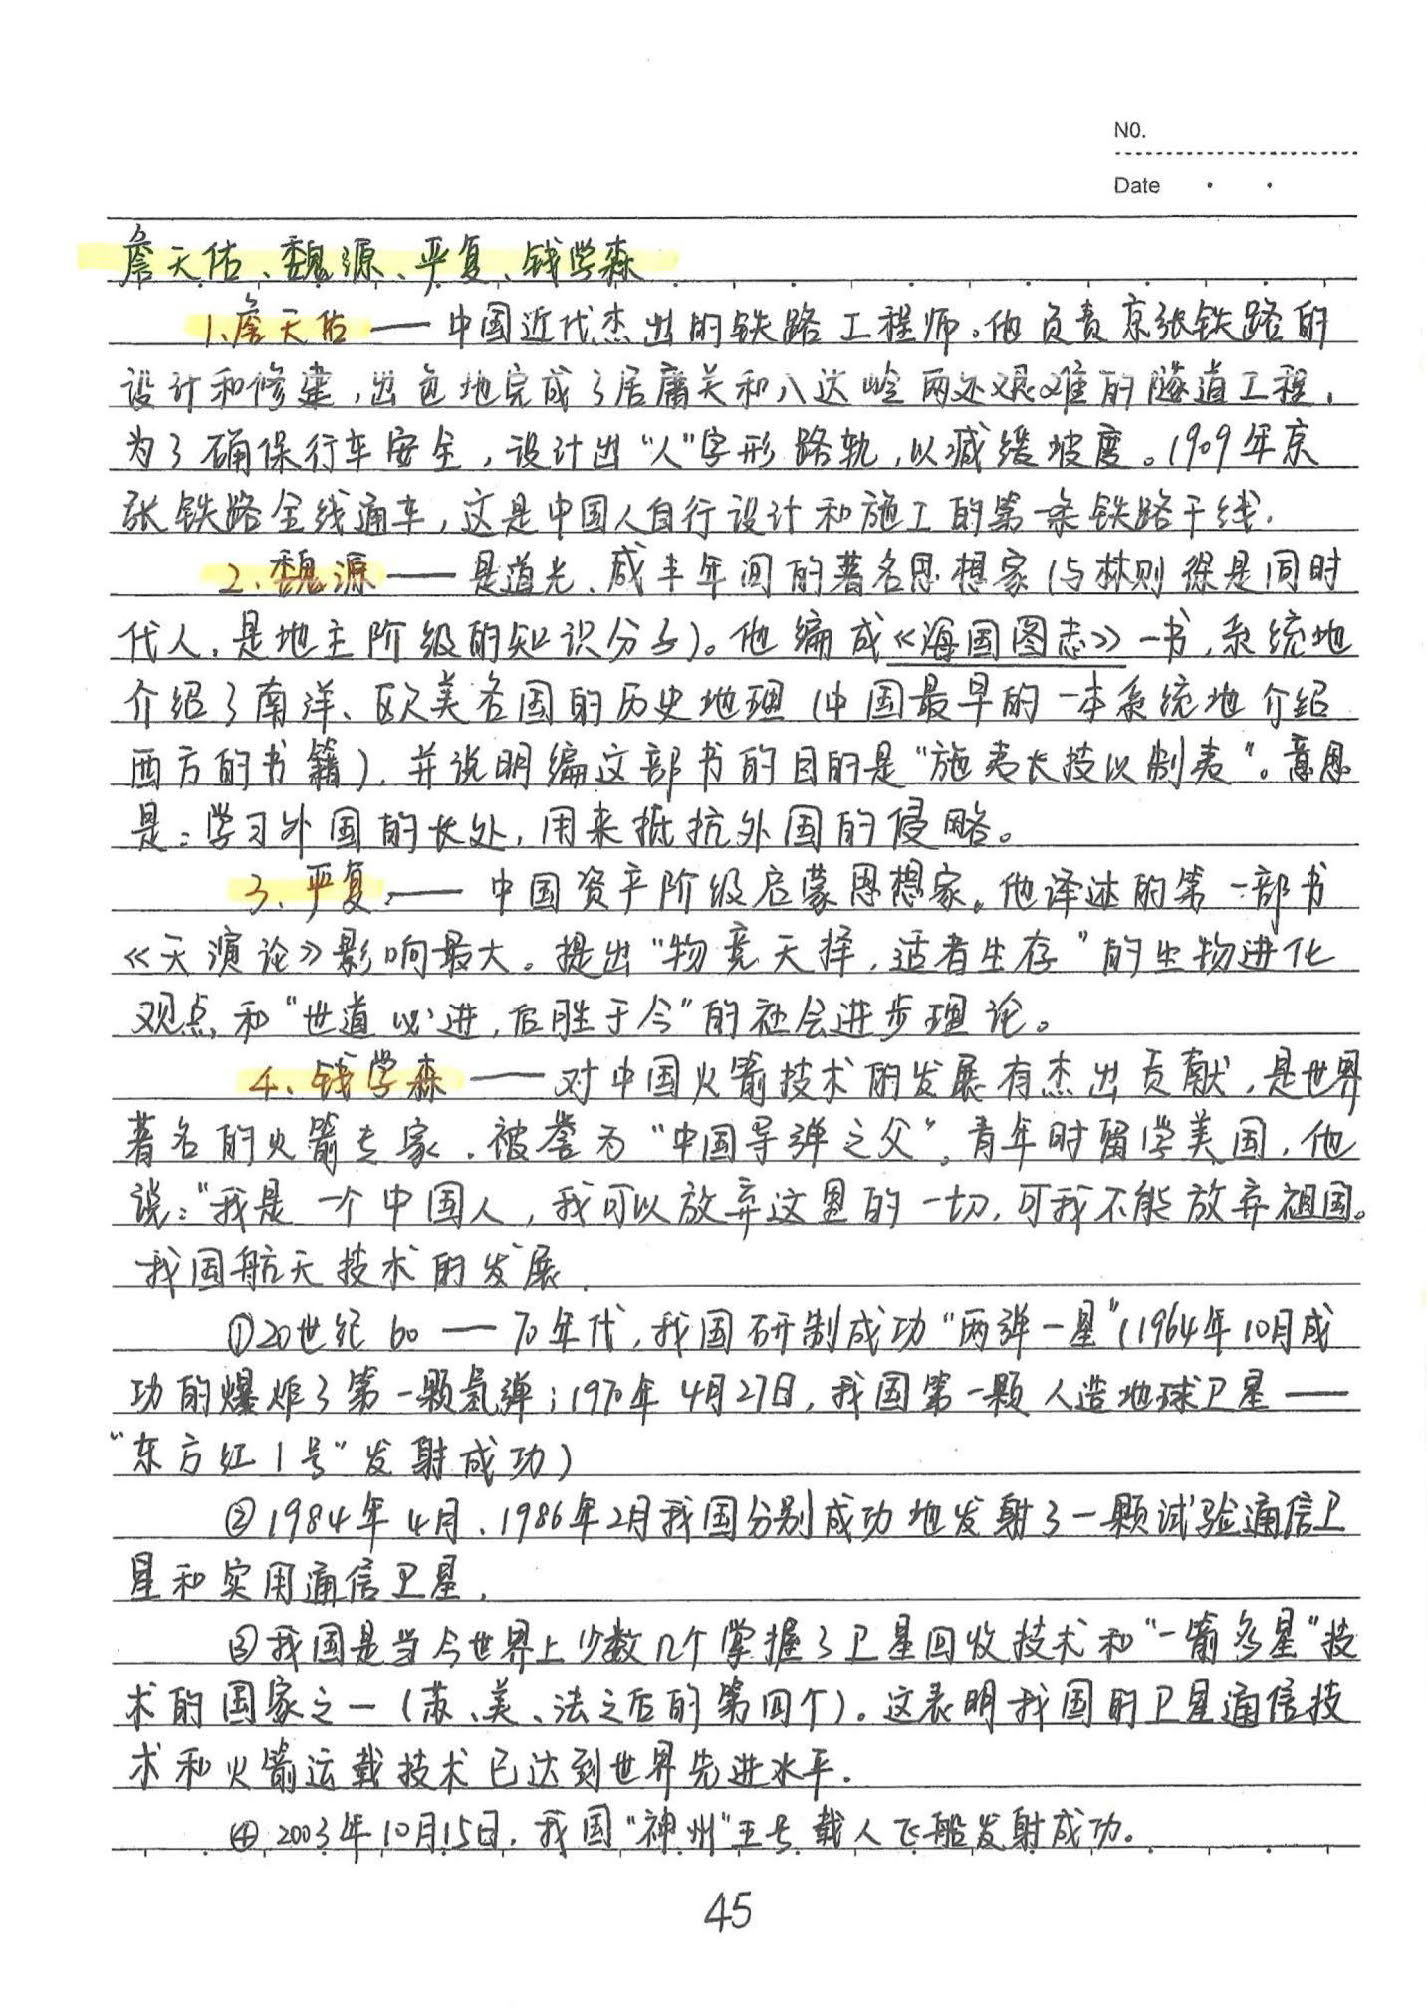 NO.
Date
詹天佑、魏源、严复、钱学森
1、詹天佑——中国近代杰出的铁路工程师。他负责京张铁路的
设计和修建，出色地完成了居庸关和八达岭两处艰难的隧道工程，
为了确保行车安全，设计出“人”字形路轨，以减缓坡度。1909年京
张铁路全线通车，这是中国人自行设计和施工的第一条铁路干线.
2、魏源——是道光、咸丰年间的著名思想家(与林则徐是同时
代人，是地主阶级的知识分子)。他编成《海国图志》一书，系统地
介绍了南洋、欧美各国的历史地理(中国最早的一本系统地介绍
西方的书籍)，并说明编这部书的目的是“施夷长技以制夷”。意思
是：学习外国的长处，用来抵抗外国的侵略。
3、严复——中国资产阶级启蒙思想家。他译述的第一部书
《天演论》影响最大。提出“物竞天择，适者生存”的生物进化
观点和“世道必进，后胜于今”的社会进步理论。
4、钱学森——对中国火箭技术的发展有杰出贡献，是世界
著名的火箭专家，被誉为“中国导弹之父”。青年时留学美国，他
说：“我是一个中国人，我可以放弃这里的一切，可我不能放弃祖国。
我国航天技术的发展.
①20世纪60——70年代，我国研制成功“两弹一星”(1964年10月成
功的爆炸了第一颗氢弹；1970年4月27日，我国第一颗人造地球卫星——
“东方红1号”发射成功)
②1984年4月、1986年2月我国分别成功地发射了一颗试验通信卫
星和实用通信卫星.
③我国是当今世界上少数几个掌握了卫星回收技术和“一箭多星”技
术的国家之一(苏、美、法之后的第四个)。这表明我国的卫星通信技
术和火箭运载技术已达到世界先进水平.
④2003年10月15日，我国“神州”五号载人飞船发射成功。
45